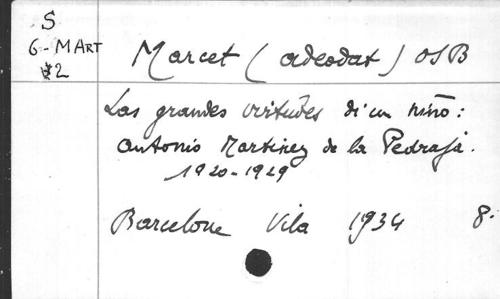 S
6-MArt
2
Marcet (adeodat) OSB
Las grandes virtudes di un niño:
Antonio Martinez de la Pedraja.
1920-1929
Barcelone Vila 1934 8.